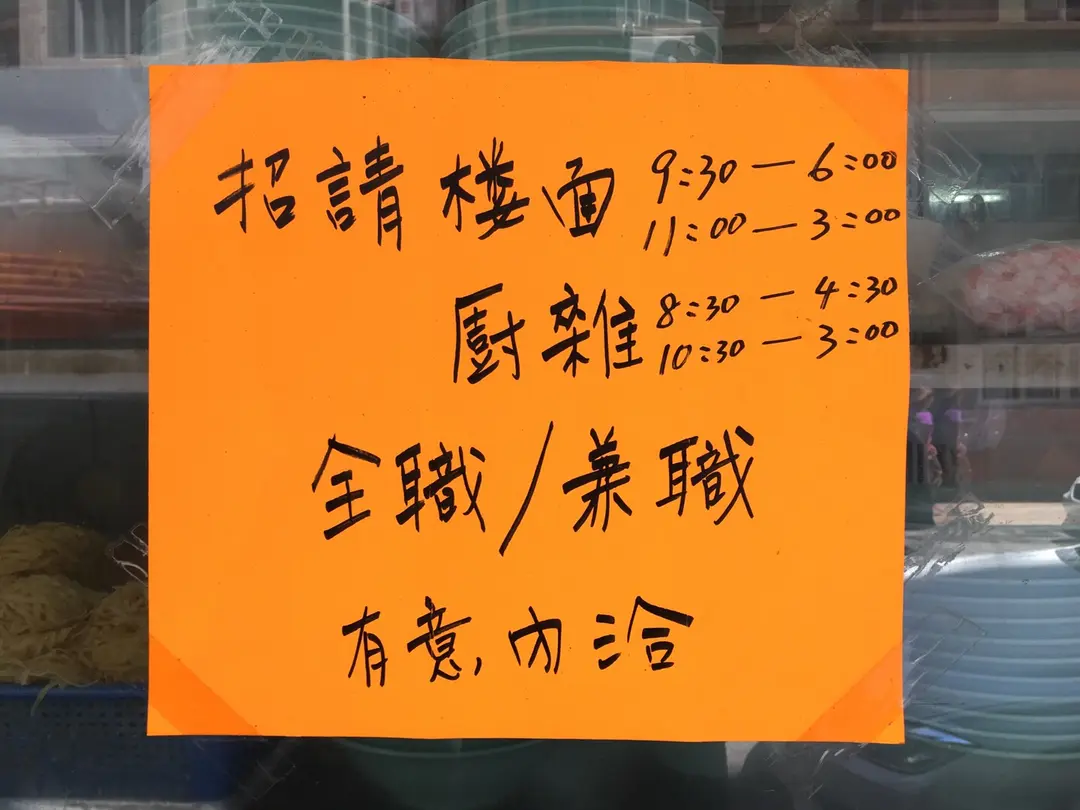 招請楼面 9:30 — 6:00
11:00 — 3:00
厨雜 8:30 — 4:30
10:30 — 3:00
全職/兼職
有意,内洽